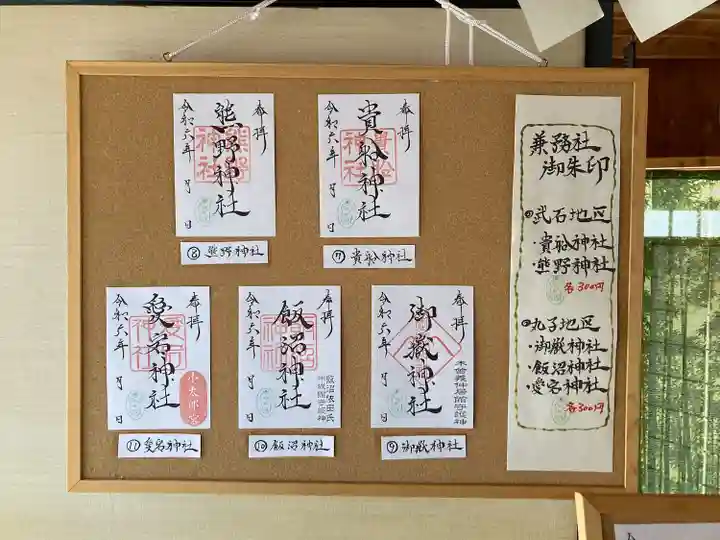 奉拝
熊野神社
令和六年 月 日
⑧熊野神社
奉拝
貴船神社
令和六年 月 日
⑦貴船神社
奉拝
愛宕神社
令和六年 月 日
小太郎宮
⑪愛宕神社
奉拝
飯沼神社
令和六年 月 日
飯沼依田氏
⑩飯沼神社
奉拝
御嶽神社
令和六年 月 日
木曽義仲居館守護神
⑨御嶽神社
兼務社
御朱印
武石地区
・貴船神社
・熊野神社
各300円
丸子地区
・御嶽神社
・飯沼神社
・愛宕神社
各300円